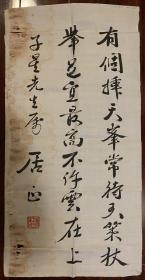 有個天峯常待策杖
舉足宜最高不許雲在上
子星先生屬
居正